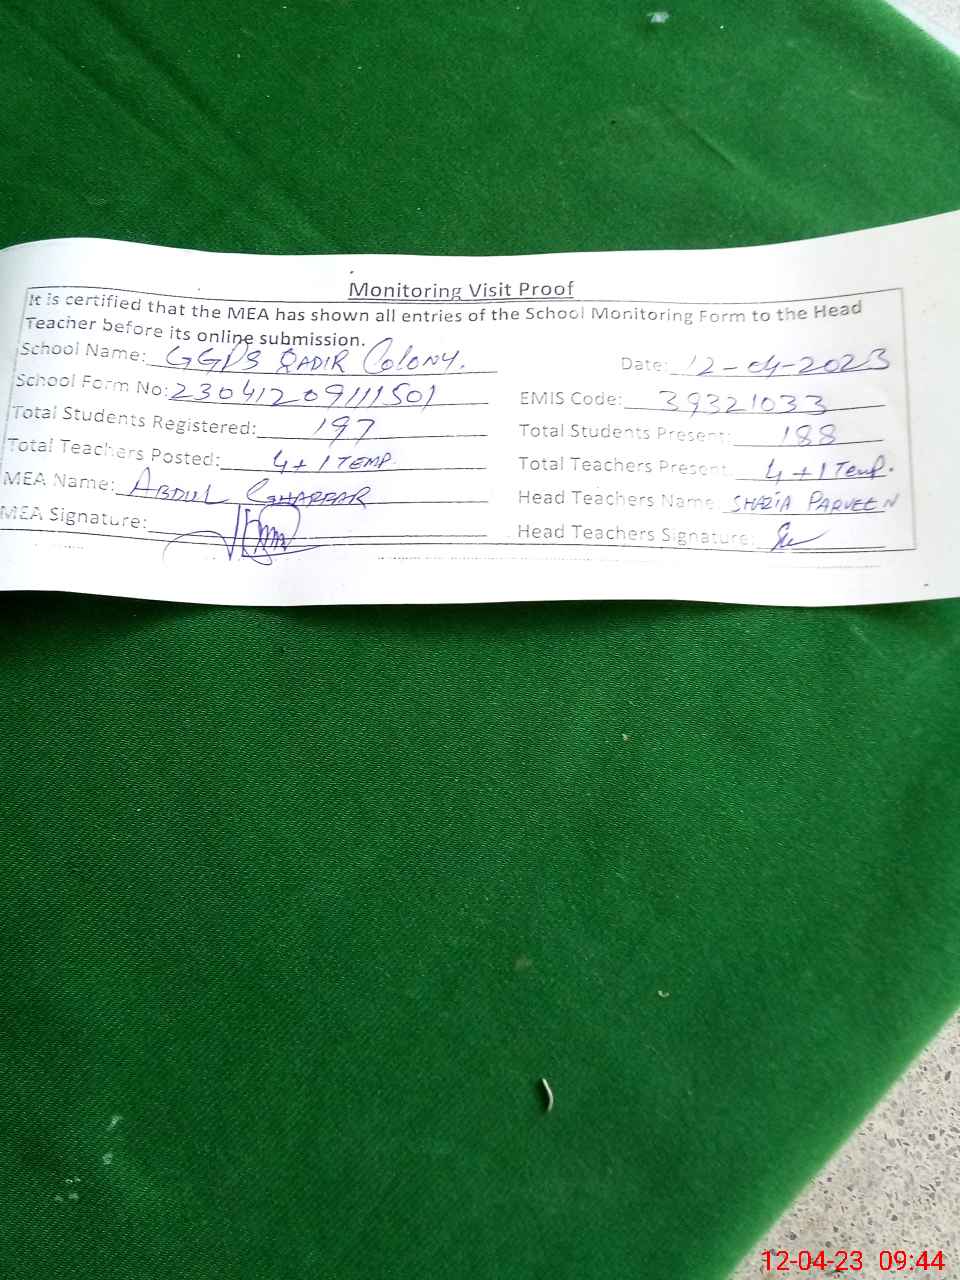 Monitoring Visit Proof
It is certified that the MEA has shown all entries of the School Monitoring Form to the Head
Teacher before its online submission.
School Name: GGPS QADIR COLONY. Date: 12-04-2023
School Form No: 23041209111501 EMIS Code: 39321033
Total Students Registered: 197 Total Students Present: 188
Total Teachers Posted: 4+1 TEMP. Total Teachers Present 4+1 Temp.
MEA Name: ABDUL GHAFFAR Head Teachers Name SHAZIA PARVEEN
MEA Signature: Head Teachers Signature:
12-04-23 09:44